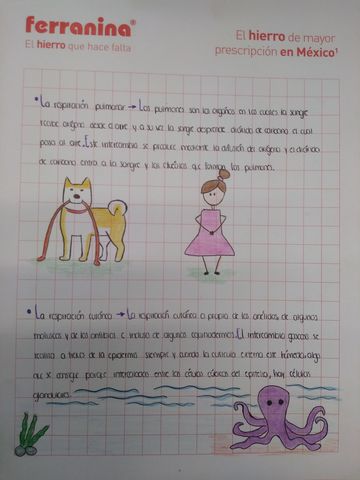 ferranina®
El hierro que hace falta
El hierro de mayor
prescripción en México¹
• La respiración pulmonar → Los pulmones son los órganos en los cuales la sangre
recibe oxígeno desde el aire y a su vez la sangre desprende dióxido de carbono el cual
pasa al aire. Este intercambio se produce mediante la difusión del oxígeno y el dióxido
de carbono entre la sangre y los alvéolos que forman los pulmones.
• La respiración cutánea → La respiración cutánea es propia de los anélidos, de algunos
moluscos y de los anfibios e incluso de algunos equinodermos. El intercambio gaseoso se
realiza a través de la epidermis siempre y cuando la cutícula externa esté húmeda, algo
que se consigue porque intercaladas entre las células cúbicas del epitelio, hay células
glandulares.